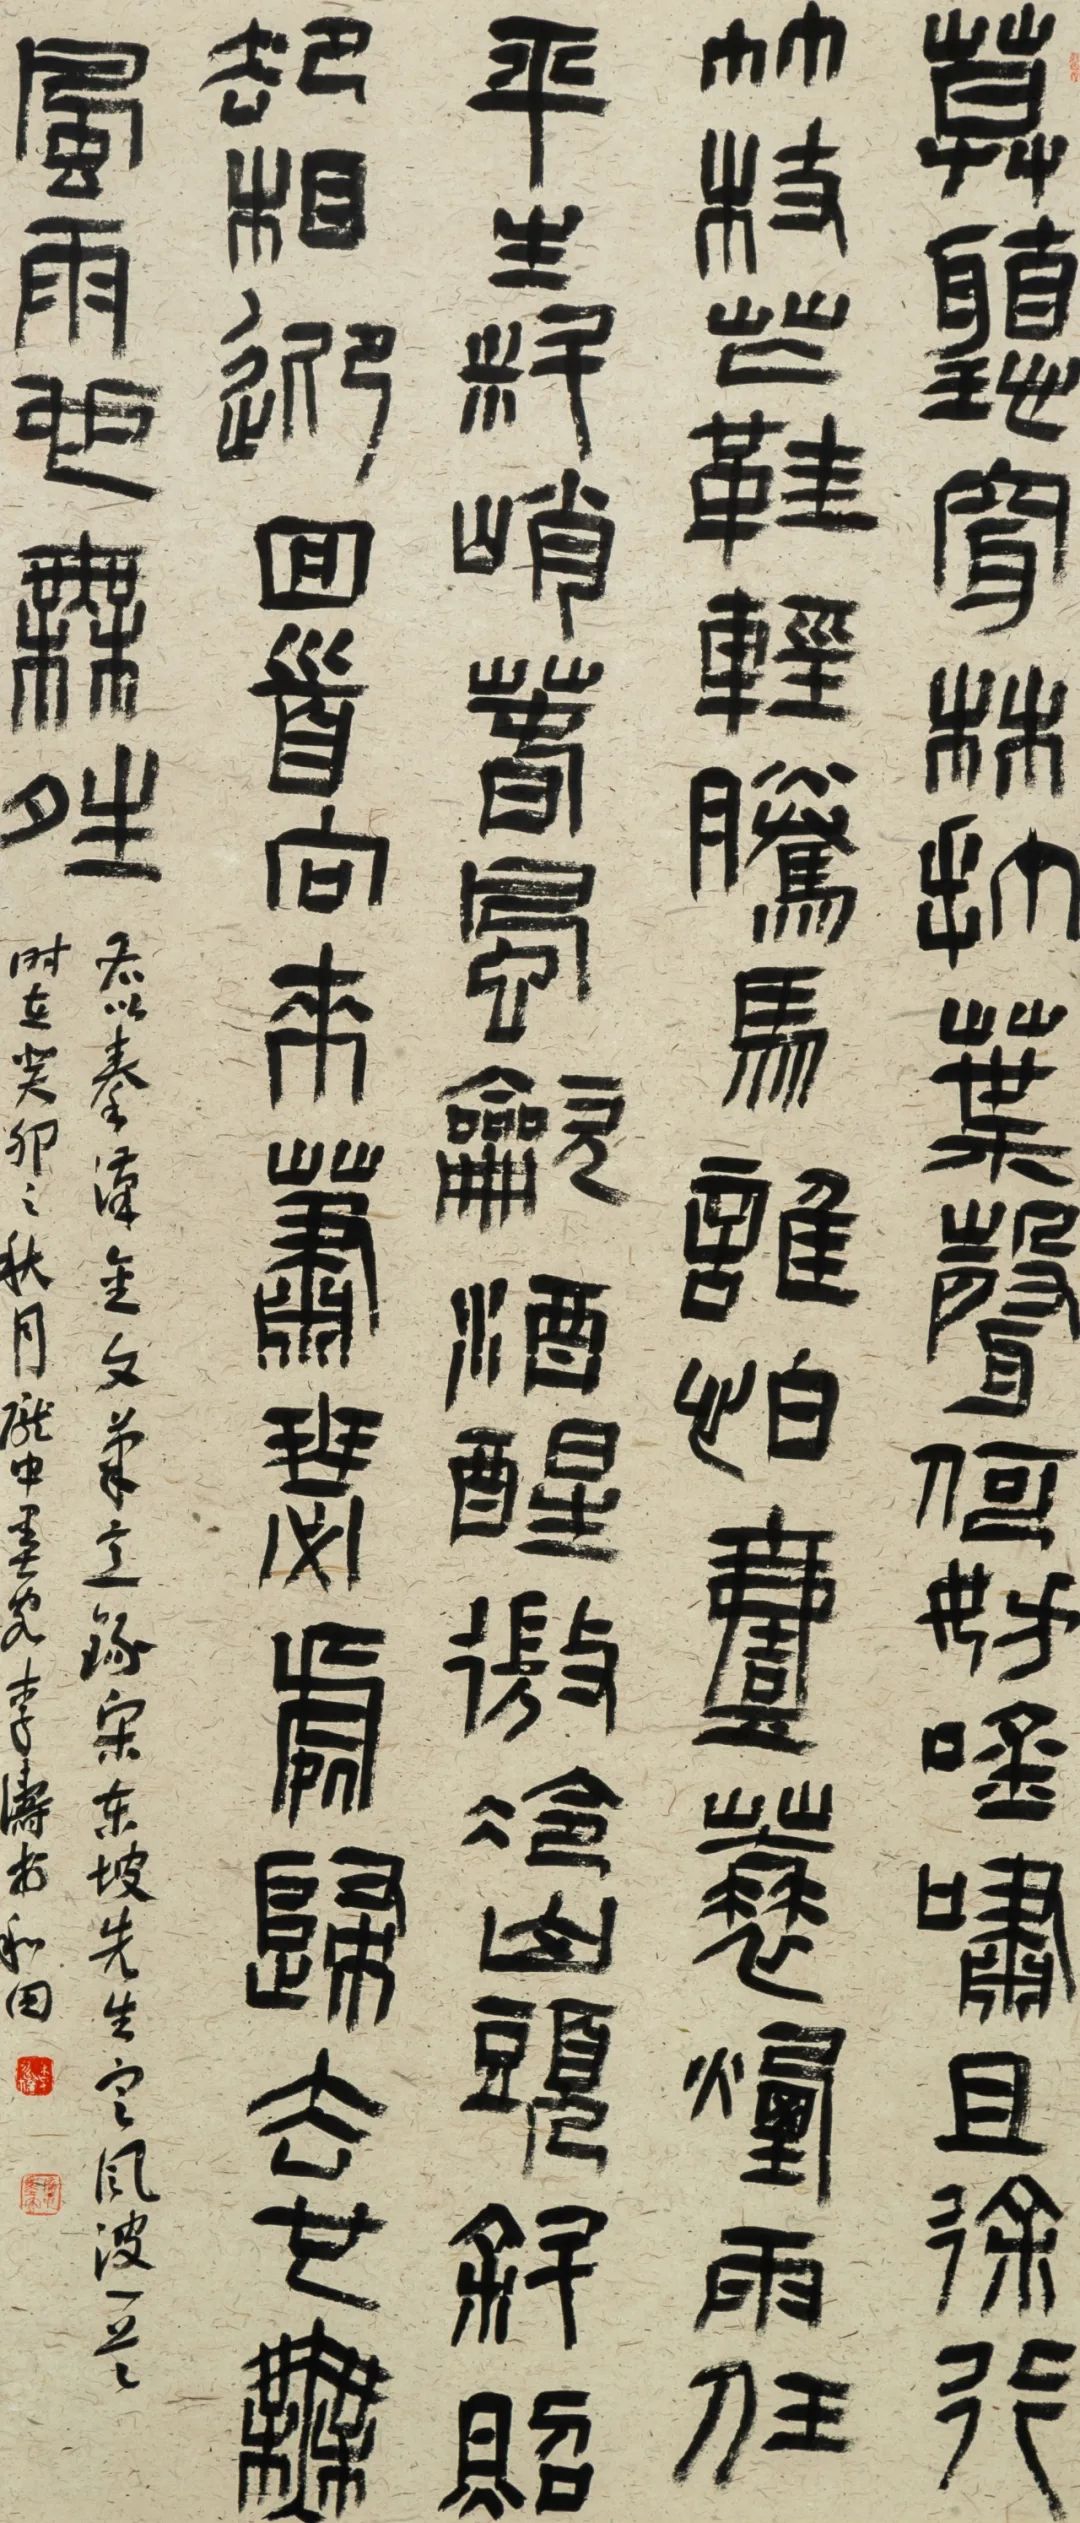 莫聽穿林打葉聲何妨吟嘯且徐行
竹杖芒鞋輕騰馬誰怕壹蓑煙雨任
平生料峭春風龡酒醒微冷山頭斜照
却相迎回首向來蕭瑟處歸去也無
風雨也無夝
以秦漢金文筆意錄宋东坡先生定风波一首
时在癸卯之秋月中墨客李濤於和田